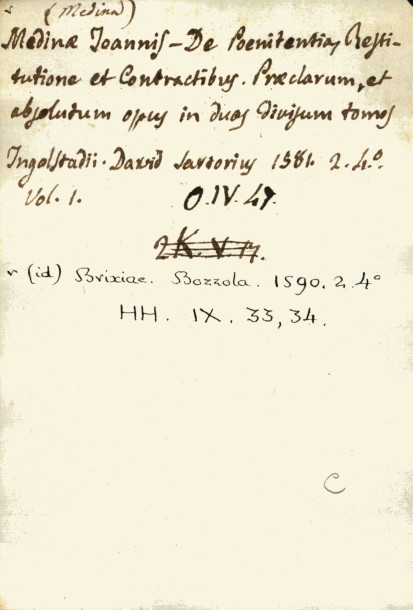 (Medina)
Medinæ Joannis – De Poenitentia, Resti-
tutione et Contractibus. Præclarum, et
absolutum opus in duos divisum tomos
Ingolstadii. David Sartorius 1581. 2. 4.º
Vol. 1. O. IV. 47.
K. V. 17.
(id) Brixiae. Bozzola. 1590. 2. 4º
HH. IX. 33, 34.
C